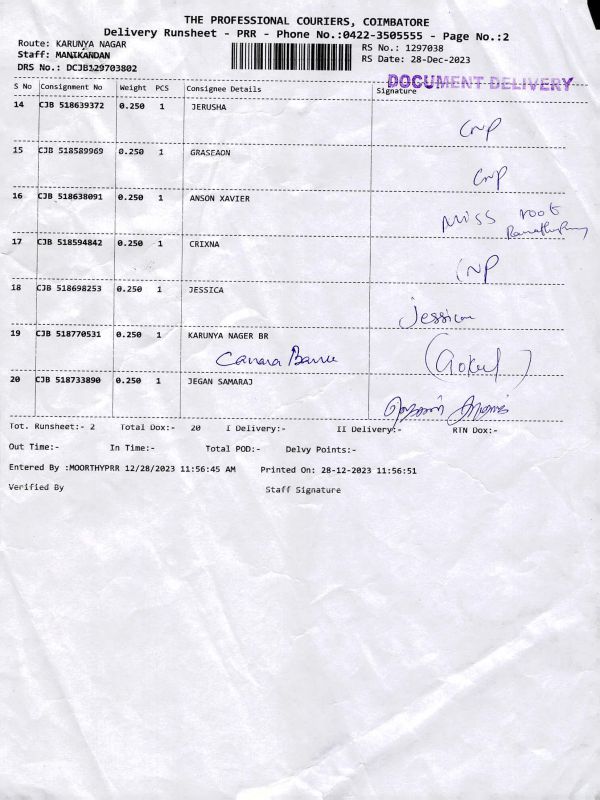 THE PROFESSIONAL COURIERS, COIMBATORE
Delivery Runsheet - PRR - Phone No.:0422-3505555 - Page No.:2
Route: KARUNYA NAGAR RS No.: 1297038
Staff: MANIKANDAN RS Date: 28-Dec-2023
DRS No.: DCJB129703802
DOCUMENT DELIVERY
S No Consignment No Weight PCS Consignee Details Signature
14 CJB 518639372 0.250 1 JERUSHA
CNP
15 CJB 518589969 0.250 1 GRASEAON
CNP
16 CJB 518638091 0.250 1 ANSON XAVIER
Miss root
17 CJB 518594842 0.250 1 CRIXNA
CNP
18 CJB 518698253 0.250 1 JESSICA
Jessica
19 CJB 518770531 0.250 1 KARUNYA NAGER BR
Canara Bank (Gokul)
20 CJB 518733890 0.250 1 JEGAN SAMARAJ
Tot. Runsheet:- 2 Total Dox:- 20 I Delivery:- II Delivery:- RTN Dox:-
Out Time:- In Time:- Total POD:- Delvy Points:-
Entered By :MOORTHYPRR 12/28/2023 11:56:45 AM Printed On: 28-12-2023 11:56:51
Verified By Staff Signature